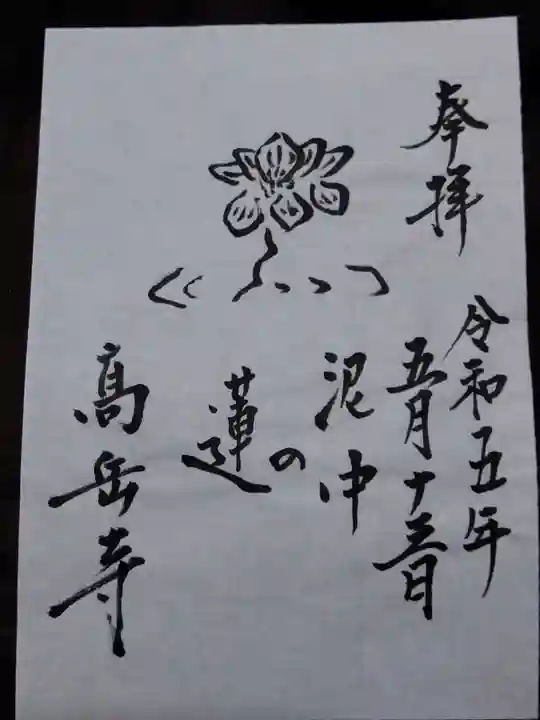 奉拝
令和五年
五月十三日
泥中
の
蓮
髙岳寺